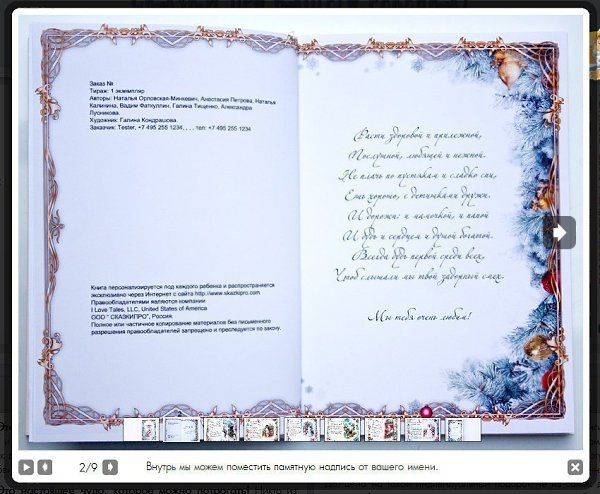 Заказ №
Тираж: 1 экземпляр
Авторы: Наталья Орловская-Минкевич, Анастасия Петрова, Наталья
Калинина, Вадим Фаткуллин, Галина Тищенко, Александра
Лусникова.
Художник: Галина Кондрашова.
Заказчик: Tester, +7 495 255 1234, , , , тел: +7 495 255 1234
Книга персонализируется под каждого ребенка и распространяется
эксклюзивно через Интернет с сайта http://www.skazkipro.com
Правообладателями являются компании
I Love Tales, LLC, United States of America
ООО " СКАЗКИПРО", Россия.
Полное или частичное копирование материалов без письменного
разрешения правообладателей запрещено и преследуется по закону.
Расти здоровой и прилежной,
Послушной, любящей и нежной.
Не плачь по пустякам и сладко спи,
Ешь хорошо, с детишками дружи.
И дорожи: и мамочкой, и папой
И будь и сердцем и душой богатой.
Всегда будь первой среди всех,
Чтоб слышали мы твой задорный смех.
Мы тебя очень любим!
2/9
Внутрь мы можем поместить памятную надпись от вашего имени.